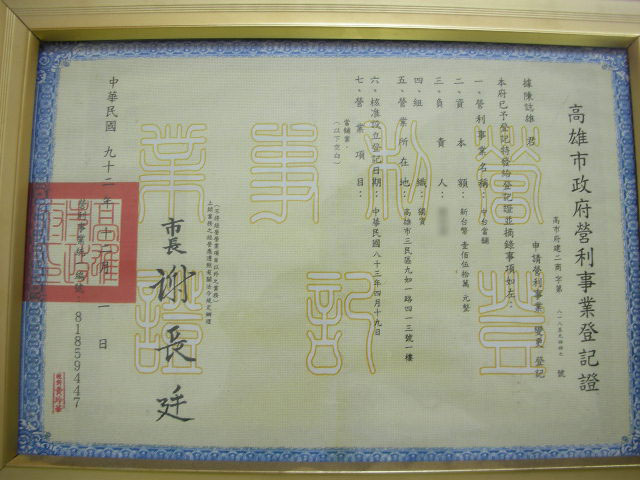 高雄市政府營利事業登記證
高市府建二商字第 號
據陳誌雄 君 申請營利事業 變更 登記
本府已予登記特發給登記證並摘錄事項如左：
一、營利事業名稱：中台當舖
二、資本額：新台幣 壹佰伍拾萬 元整
三、負責人：
四、組織：獨資
五、營業所在地：高雄市三民區九如一路四一三號一樓
六、核准設立登記日期：中華民國 八十三年四月十九日
七、營業項目：
當舖業。
（以下空白）
市長 謝長廷
中華民國 九十二年十 月 一日
營利事業統一編號：81859447
營利事業登記證